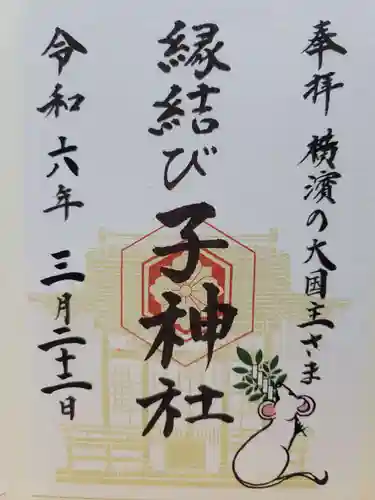 奉拝 横濱の大国主さま
縁結び子神社
令和六年三月二十二日